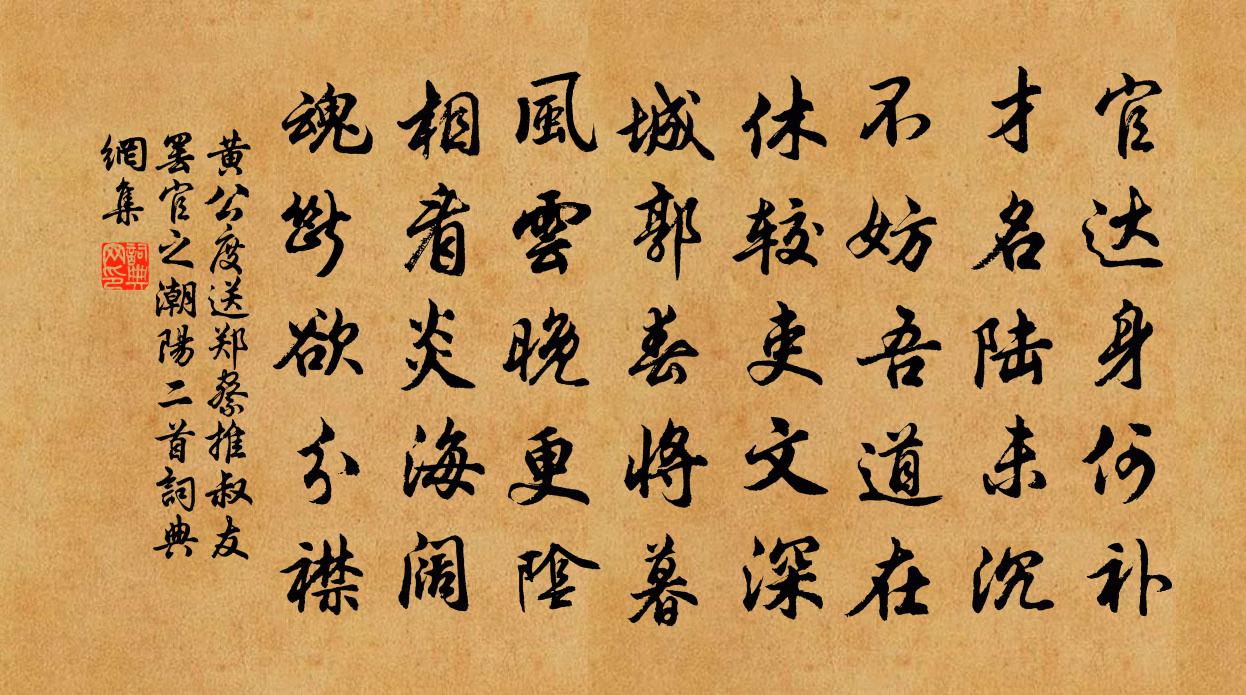 官达身何补
才名陆未沉
不妨吾道在
休较吏文深
城郭春将暮
風雲晚更陰
相看炎海阔
魂斷欲分襟
黄公度送郑察推叔友
罢官之潮陽二首詞典
網集
詞典网印